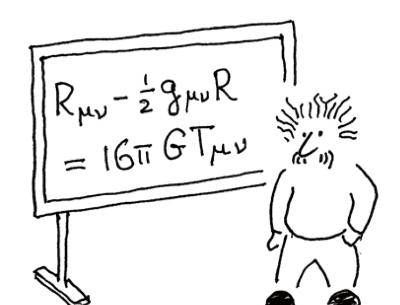 Rμν - ½ gμνR
= 16π GTμν